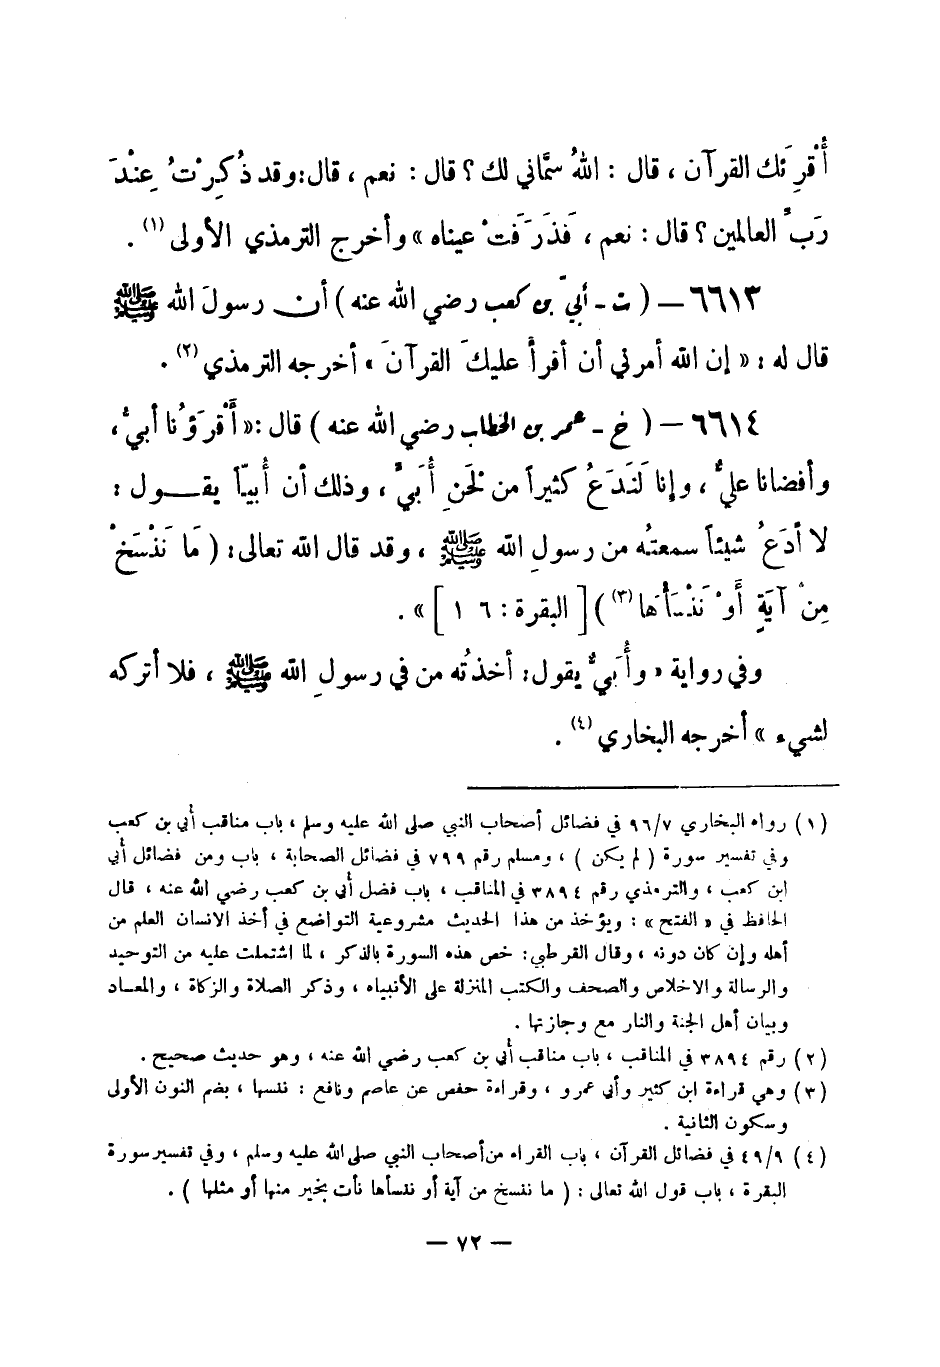 أُقْرِئَك القرآن ، قال : اللهُ سمَّاني لك ؟ قال : نعم ، قال : وقد ذُكِرْتُ عِنْدَ
رَبِّ العالمين ؟ قال : نعم ، فَذَرَفَتْ عيناه » وأخرج الترمذي الأولى (١) .
٦٦١٣ – ( ت - أبيّ بن كعب رضي الله عنه ) أن رسولَ الله ﷺ
قال له : « إن الله أمرني أن أقرأَ عليكَ القرآنَ » أخرجه الترمذي (٢) .
٦٦١٤ – ( خ - عمر بن الخطاب رضي الله عنه ) قال : « أَقْرَؤُنا أبيٌّ ،
وأقضانا عليٌّ ، وإنا لَنَدَعُ كثيراً من لَحَنِ أُبَيٍّ ، وذلك أن أُبيّاً يقـــول :
لا أدَعُ شيئاً سمعتُه من رسولِ الله ﷺ ، وقد قال الله تعالى : ( مَا نَنْسَخْ
مِنْ آيَةٍ أَوْ نَنْسَأْهَا (٣) ) [ البقرة : ٦ ١ ] » .
وفي رواية « وأُبَيٌّ يقول : أخذتُه من في رسولِ الله ﷺ ، فلا أتركه
لشيء » أخرجه البخاري (٤) .
(١) رواه البخاري ٩٦/٧ في فضائل أصحاب النبي صلى الله عليه وسلم ، باب مناقب أُبي بن كعب
وفي تفسير سورة ( لم يكن ) ، ومسلم رقم ٧٩٩ في فضائل الصحابة ، باب ومن فضائل أُبي
ابن كعب ، والترمذي رقم ٣٨٩٤ في المناقب ، باب فضل أُبي بن كعب رضي الله عنه ، قال
الحافظ في « الفتح » : ويؤخذ من هذا الحديث مشروعية التواضع في أخذ الانسان العلم من
أهله وإن كان دونه ، وقال القرطبي : خص هذه السورة بالذكر ، لما اشتملت عليه من التوحيد
والرسالة والاخلاص والصحف والكتب المنزلة على الأنبياء ، وذكر الصلاة والزكاة ، والمعـاد
وبيان أهل الجنة والنار مع وجازتها .
(٢) رقم ٣٨٩٤ في المناقب ، باب مناقب أُبي بن كعب رضي الله عنه ، وهو حديث صحيح .
(٣) وهي قراءة ابن كثير وأبي عمرو ، وقراءة حفص عن عاصم ونافع : ننسها ، بضم النون الأولى
وسكون الثانية .
(٤) ٤٩/٩ في فضائل القرآن ، باب القراء من أصحاب النبي صلى الله عليه وسلم ، وفي تفسير سورة
البقرة ، باب قول الله تعالى : ( ما ننسخ من آية أو ننسأها نأت بخير منها أو مثلها ) .
– ٧٢ –